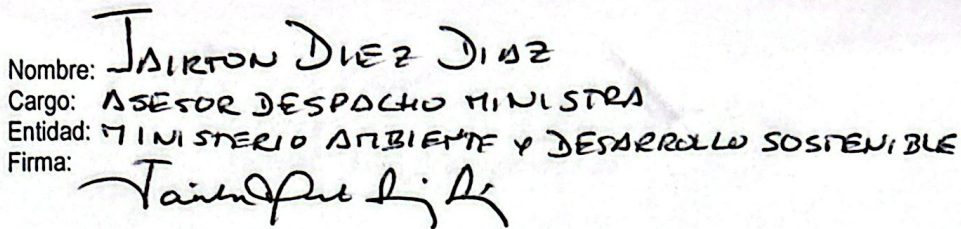 Nombre: JAIRTON DIEZ DIAZ
Cargo: ASESOR DESPACHO MINISTRA
Entidad: MINISTERIO AMBIENTE Y DESARROLLO SOSTENIBLE
Firma: